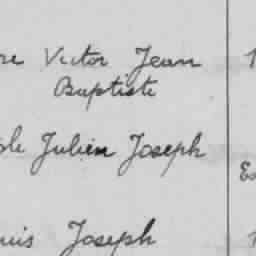 Victor Jean
Baptiste
Julien Joseph
Joseph